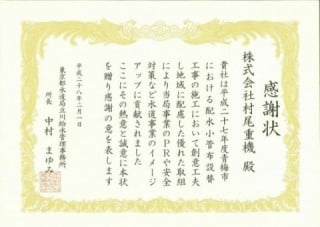 感謝状
株式会社村尾重機 殿
貴社は平成二十七年度青梅市
における配水小管布設替
工事の施工において創意工夫
し地域に配慮した優れた取組
により当局事業のPRや安全
対策など水道事業のイメージ
アップに貢献されました
ここにその熱意と誠意に本状
を贈り感謝の意を表します
平成二十八年二月一日
東京都水道局立川給水管理事務所
所長 中村 まゆみ